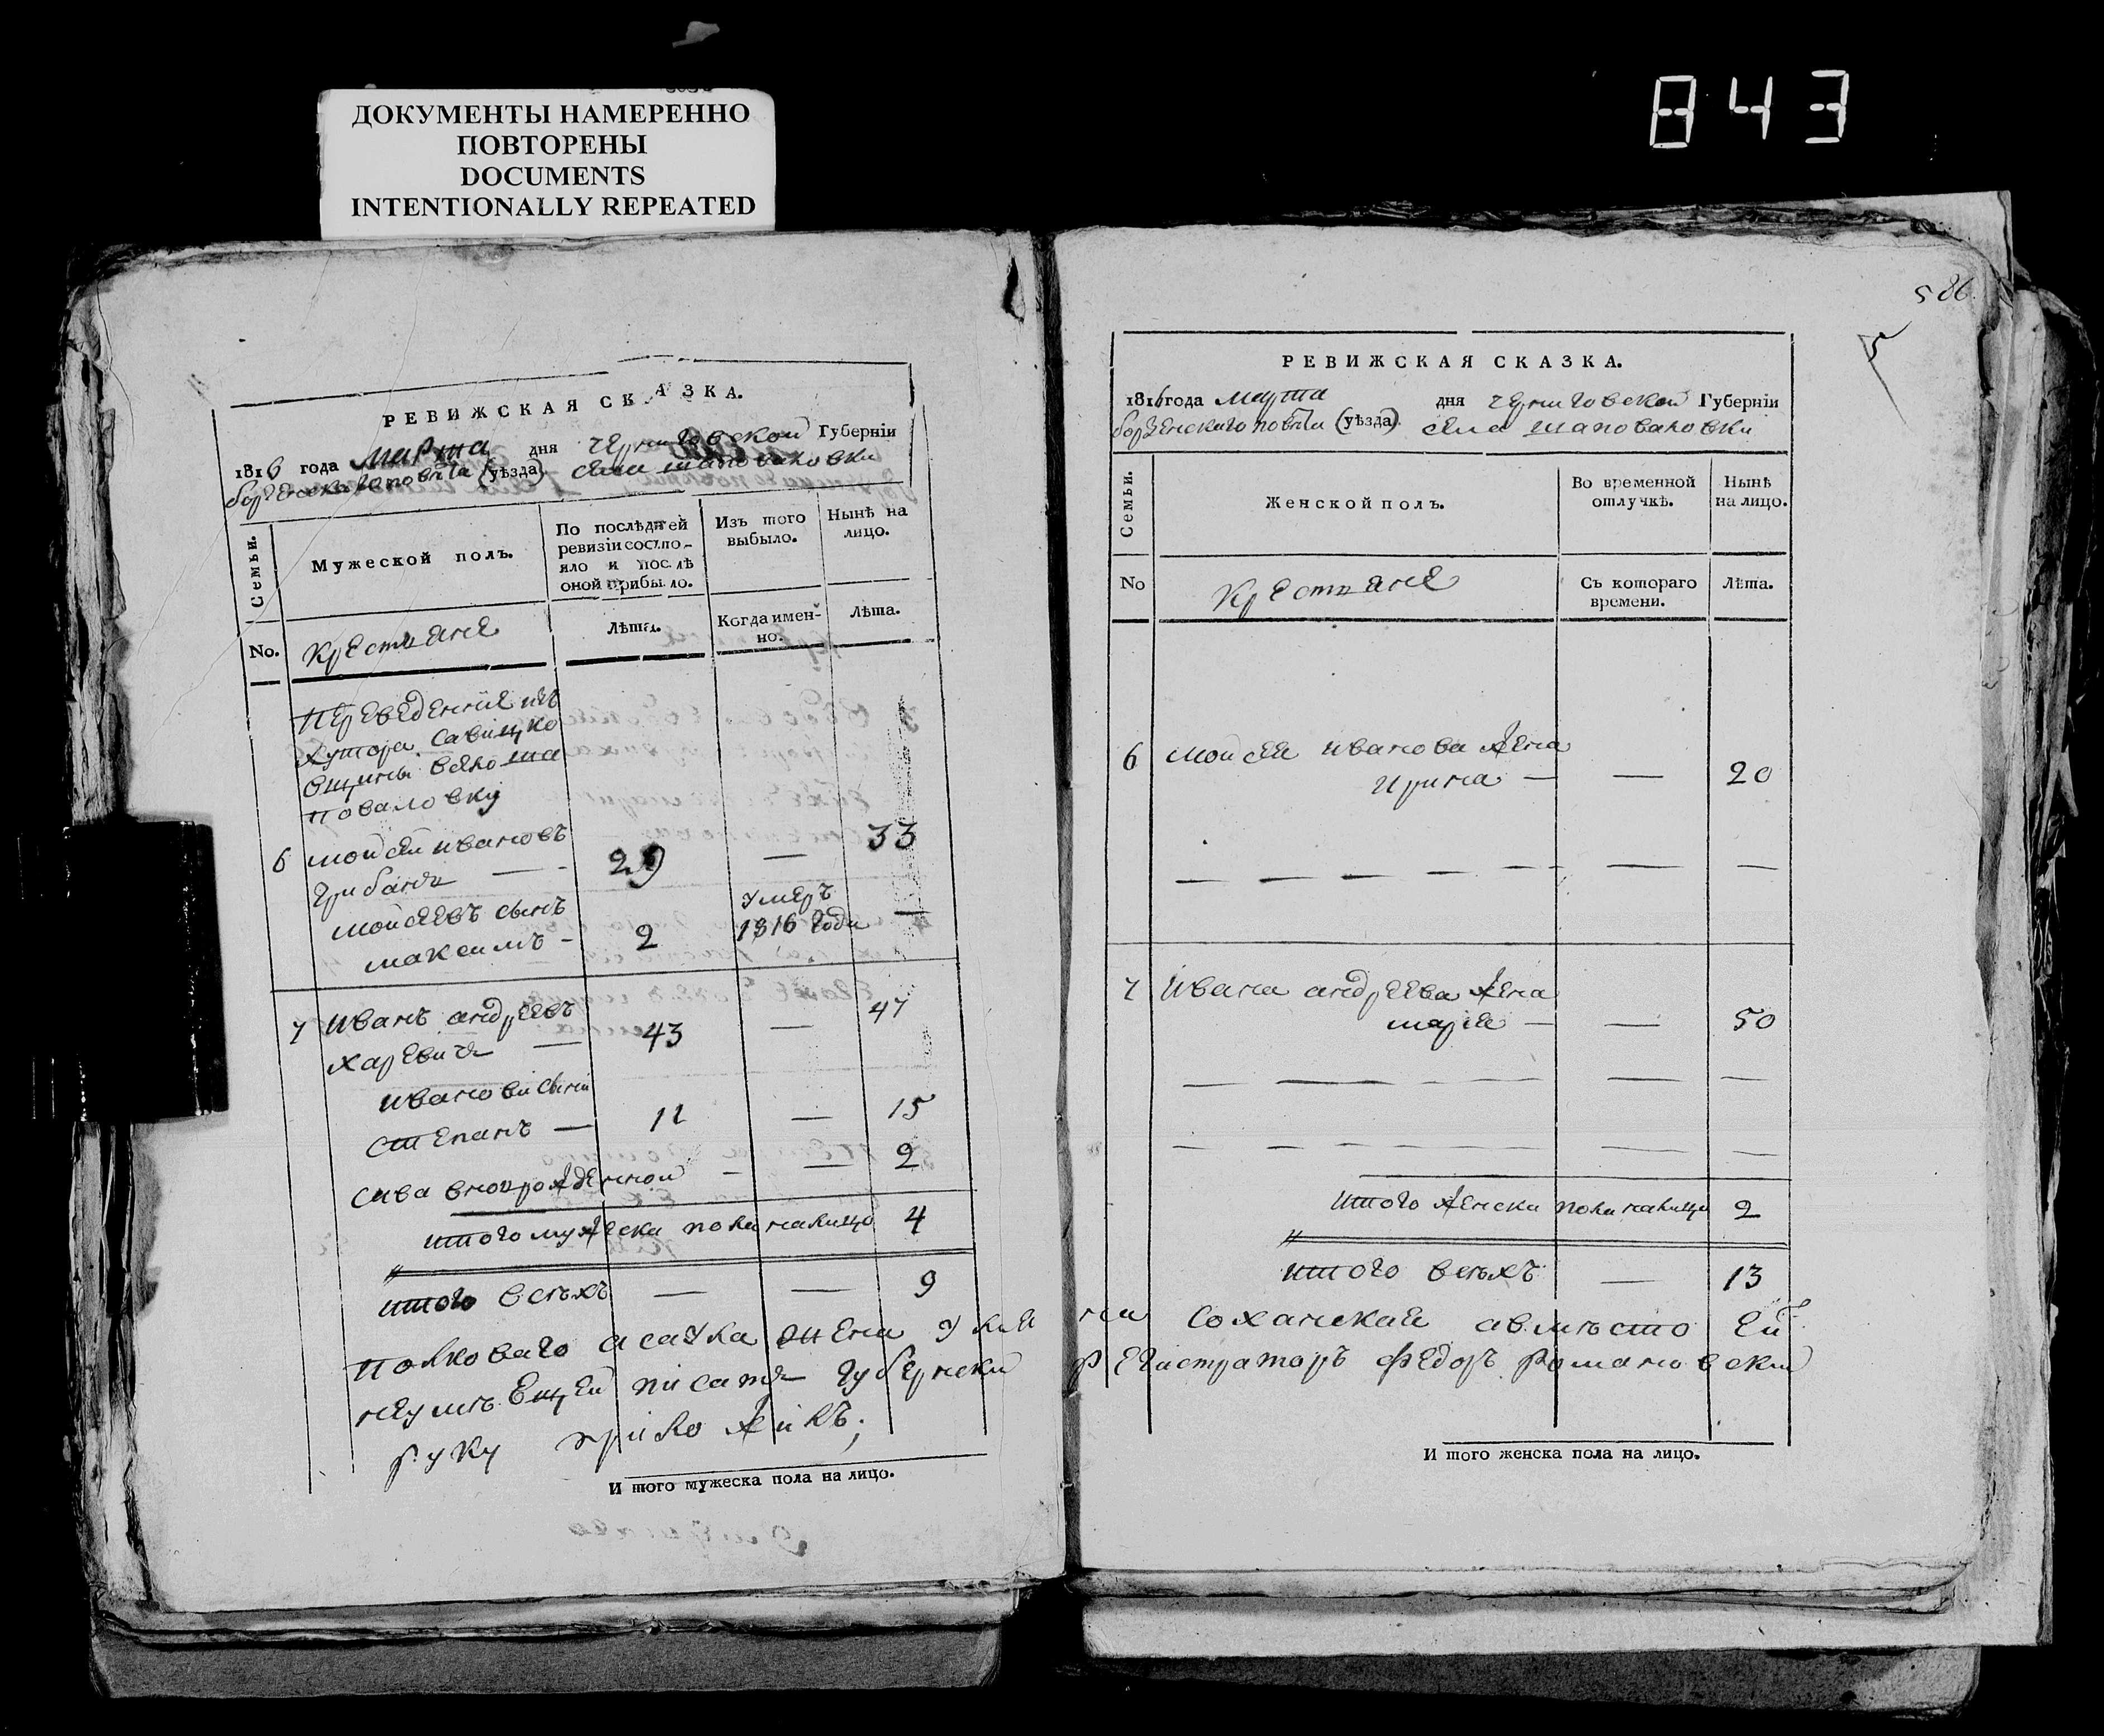 843
ДОКУМЕНТЫ НАМЕРЕННО
ПОВТОРЕНЫ
DOCUMENTS
INTENTIONALLY REPEATED
РЕВИЖСКАЯ СКАЗКА.
1816 года марта дня черниговской Губерніи
борзенскаго повѣта (уѣзда) села шаповаловки
Семьи.
Мужеской полъ.
По послѣдней ревизіи состояло и послѣ оной прибыло.
Изъ того выбыло.
Нынѣ на лицо.
No. крестьяне
Лѣта.
Когда именно.
Лѣта.
переведенніе изъ
хутора савицко
вщины село ша
поваловку
6 мойсей ивановъ
грибань — 29 — 33
мойсеевъ сынъ
максимъ - 2 умеръ 1816 года —
7 Иванъ андреевъ
харевичь — 43 — 47
иванови сыни
степанъ — 11 — 15
сава новорожденной - — 2
итого мужеска пола налицо 4
итого всѣхъ — — 9
РЕВИЖСКАЯ СКАЗКА.
1816 года марта дня черниговской Губерніи
борзенскаго повѣта (уѣзда) села шаповаловки
586
5
Семьи.
Женской полъ.
Во временной отлучкѣ.
Нынѣ на лицо.
No крестьяне
Съ котораго времени.
Лѣта.
6 мойсея иванова жена
ирина — — 20
7 Ивана андреева жена
марія — — 50
итого женска пола налицо 2
итого всѣхъ — 13
полковаго асаула жена соханская авмѣсто ей
неумѣющей писать губернски регистраторъ Федоръ романовский
руку приложилъ;
И того мужеска пола на лицо.
И того женска пола на лицо.